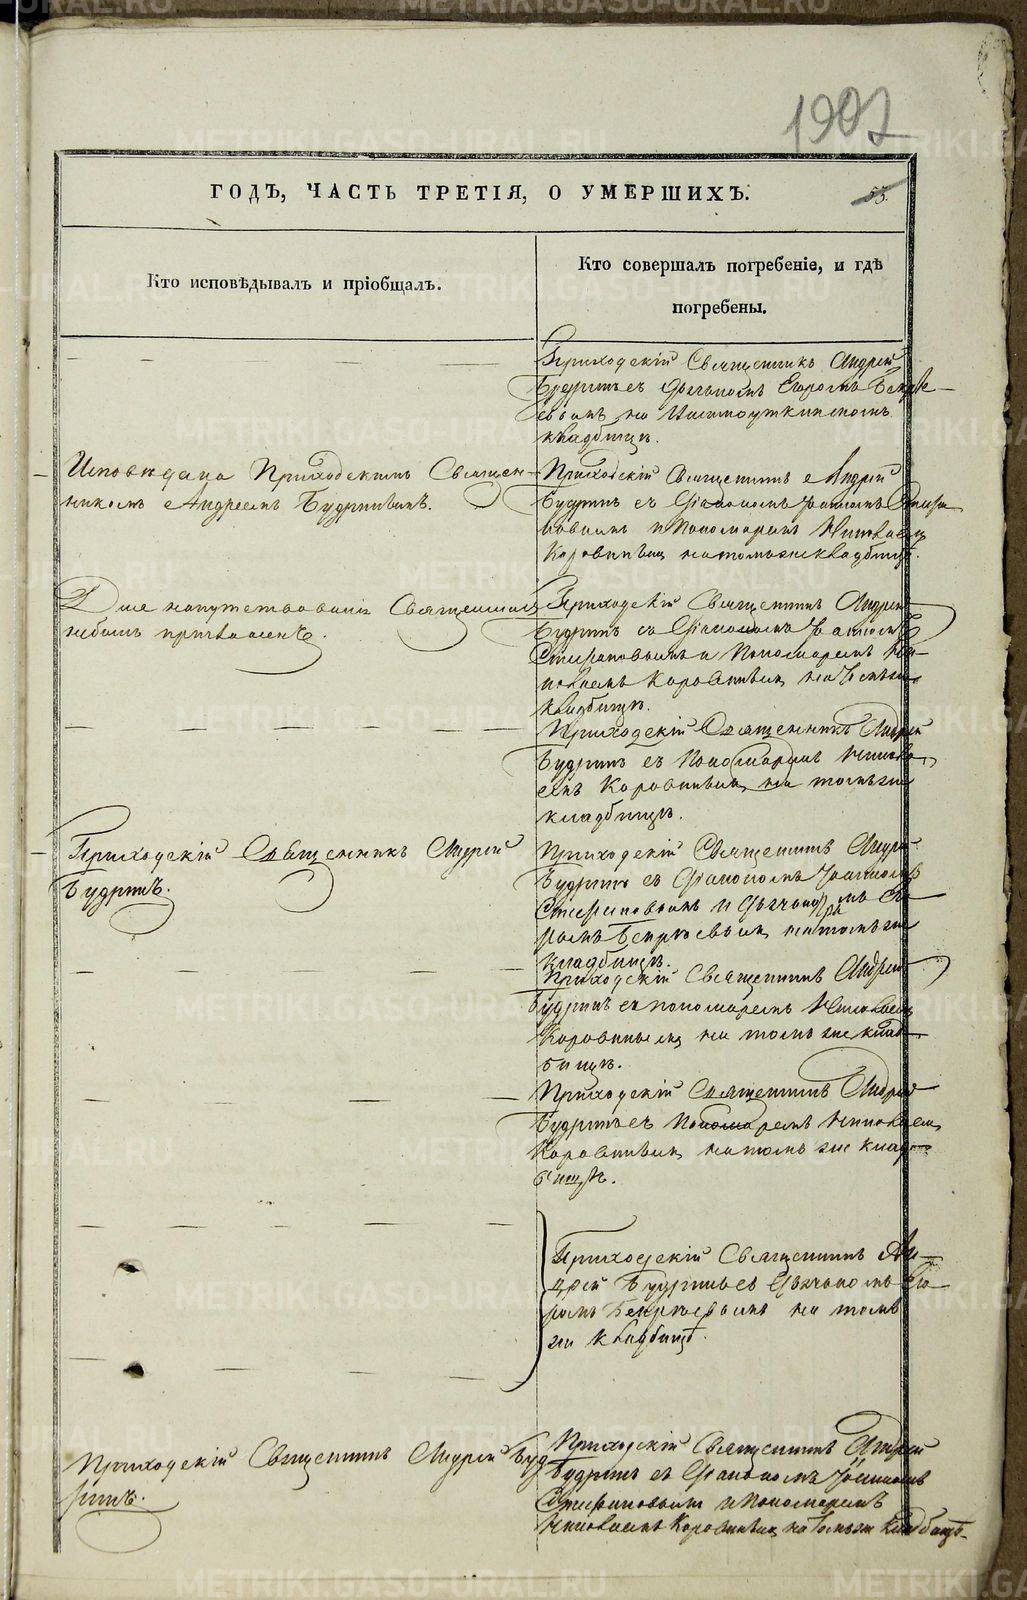 1907
ГОДЪ, ЧАСТЬ ТРЕТІЯ, О УМЕРШИХЪ.
53.
Кто исповѣдывалъ и пріобщалъ.
Кто совершалъ погребеніе, и гдѣ
погребены.
Приходскій Священникъ Андрей
Будринъ съ дьячкомъ Егоромъ
на
кладбищѣ.
Исповѣдана Приходскимъ Священ-
никомъ Андреемъ Будринымъ.
Приходскій Священникъ Андрей
Будринъ съ Діакономъ Іоанномъ Стефа-
новымъ и Пономаремъ Николаемъ
Коровинымъ на томъ же кладбищѣ.
Для напутствованія Священникъ
небылъ приглашенъ.
Приходскій Священникъ Андрей
Будринъ съ Діакономъ Іоанномъ
Стефановымъ и Пономаремъ Ни-
колаемъ Коровинымъ на томъ же
кладбищѣ.
Приходскій Священникъ Андрей
Будринъ съ Пономаремъ Никола-
емъ Коровинымъ на томъ же
кладбищѣ.
Приходскій Священникъ Андрей
Будринъ.
Приходскій Священникъ Андрей
Будринъ съ Діакономъ Іоанномъ
Стефановымъ и Дьячкомъ Его-
ромъ на томъ же
кладбищѣ.
Приходскій Священникъ Андрей
Будринъ съ пономаремъ Николаемъ
Коровинымъ на томъ же клад-
бищѣ.
Приходскій Священникъ Андрей
Будринъ съ Пономаремъ Николаемъ
Коровинымъ на томъ же клад-
бищѣ.
Приходскій Священникъ Ан-
дрей Будринъ съ Дьячкомъ Его-
ромъ на томъ
же кладбищѣ.
Приходскій Священникъ Андрей Буд-
ринъ.
Приходскій Священникъ Андрей
Будринъ съ Діакономъ Іоанномъ
Стефановымъ и Пономаремъ
Николаемъ Коровинымъ на томъ же кладбищѣ.
METRIKI.GASO-URAL.RU